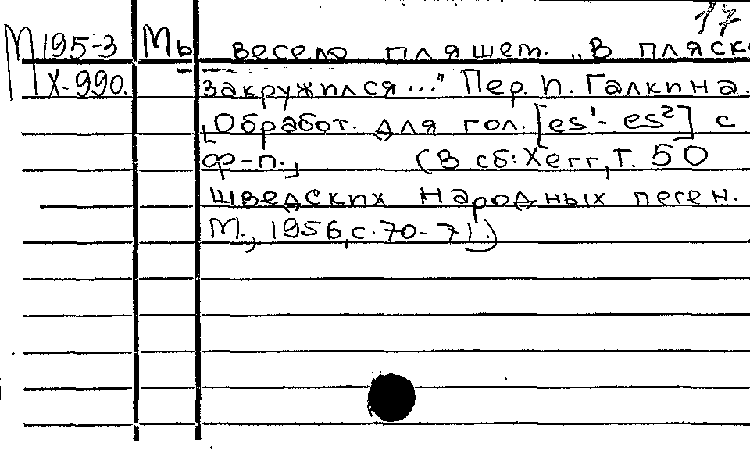 17
М195-3 Мы весело пляшем. „В пляск
X-990. закружился..." Пер. П. Галкина.
[Обработ. для гол. [es¹- es²] с
ф-п.] (В сб: Хегг, Т. 50
шведских народных песен.
М., 1956, с. 70-71.)